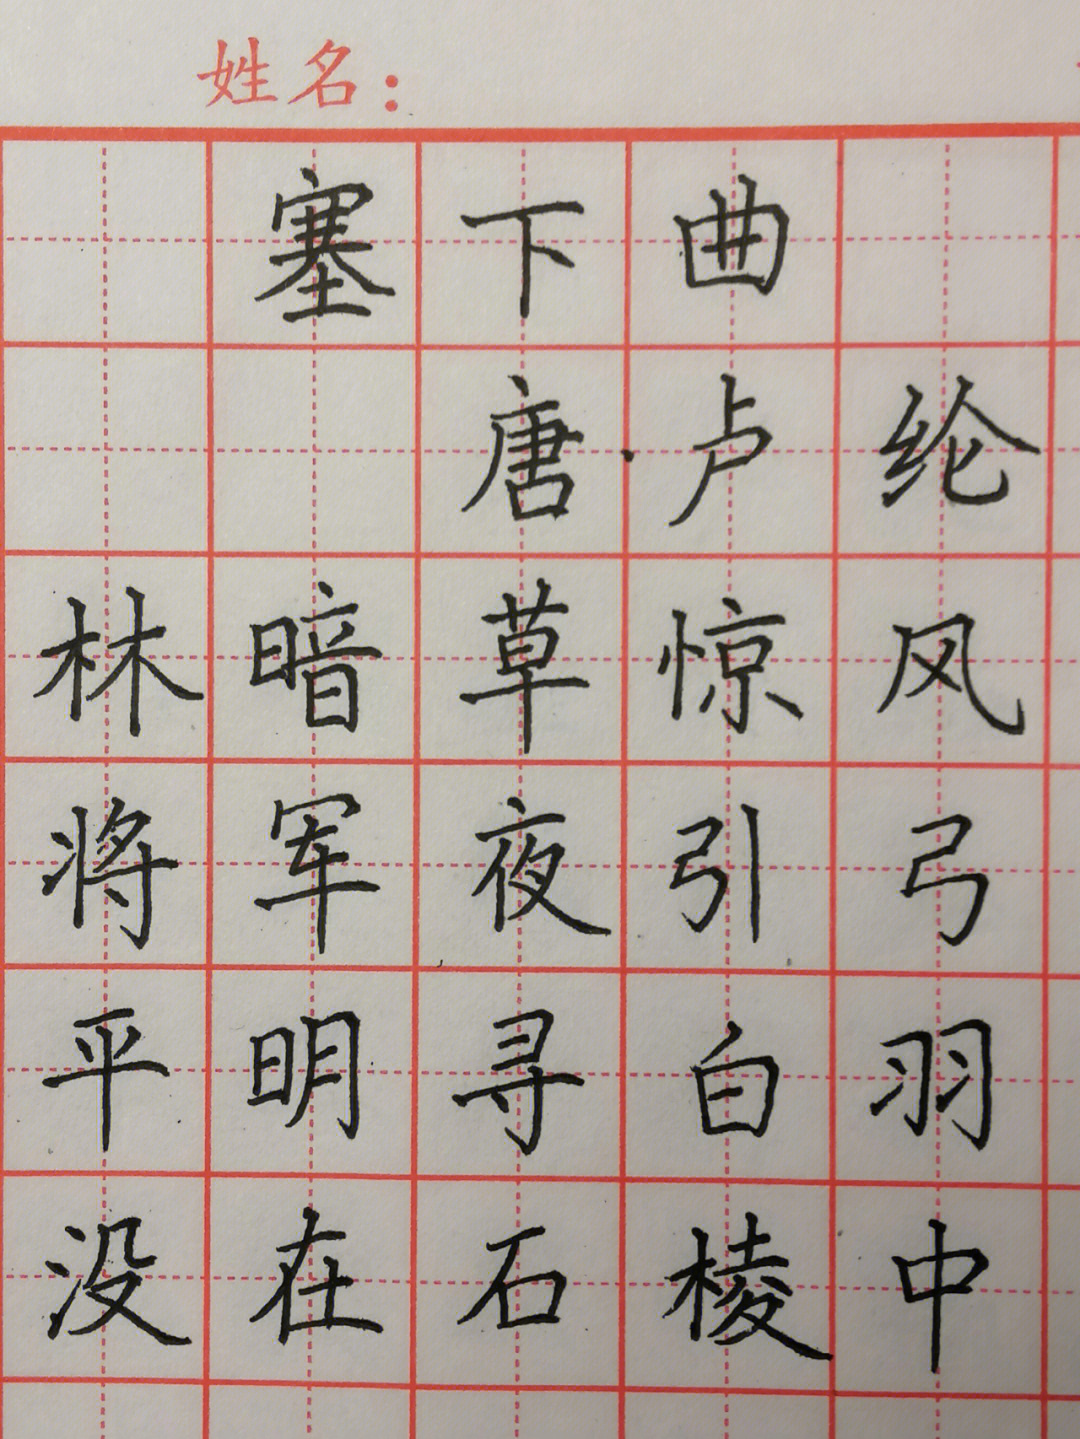 姓名：
塞下曲
唐·卢纶
林暗草惊风
将军夜引弓
平明寻白羽
没在石棱中